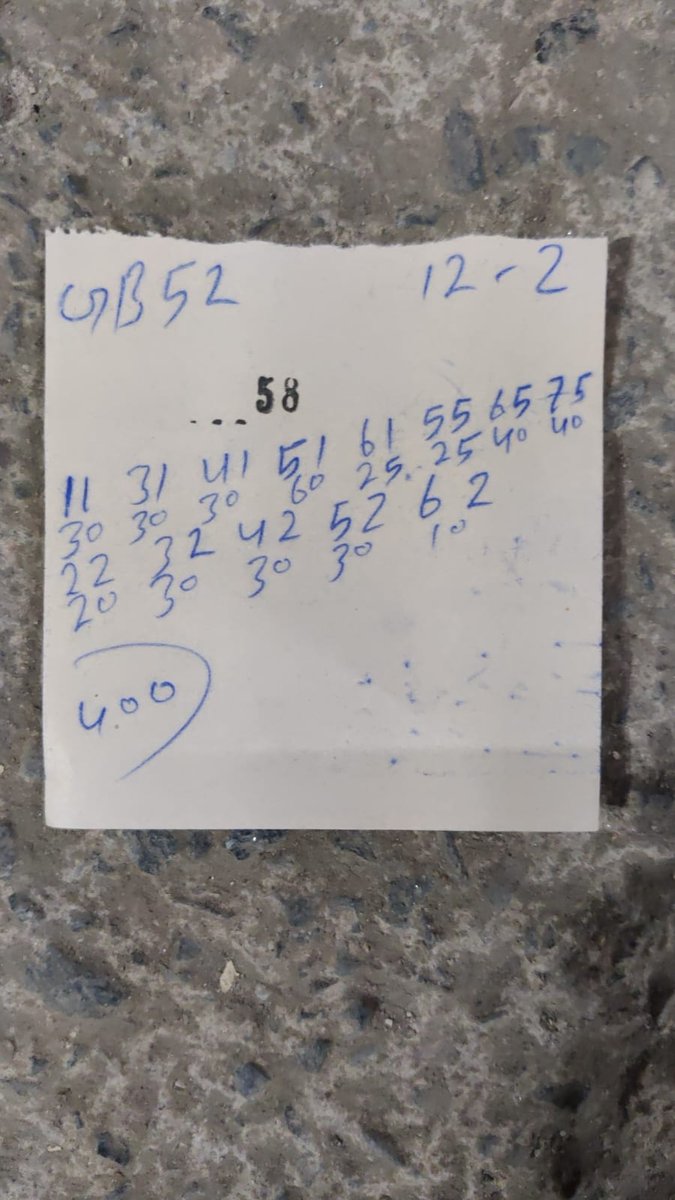 GB52 12-2
...58
11 31 41 51 61 55 65 75
30 30 30 60 25 25 40 40
22 32 42 52 62
20 30 30 30 10
400